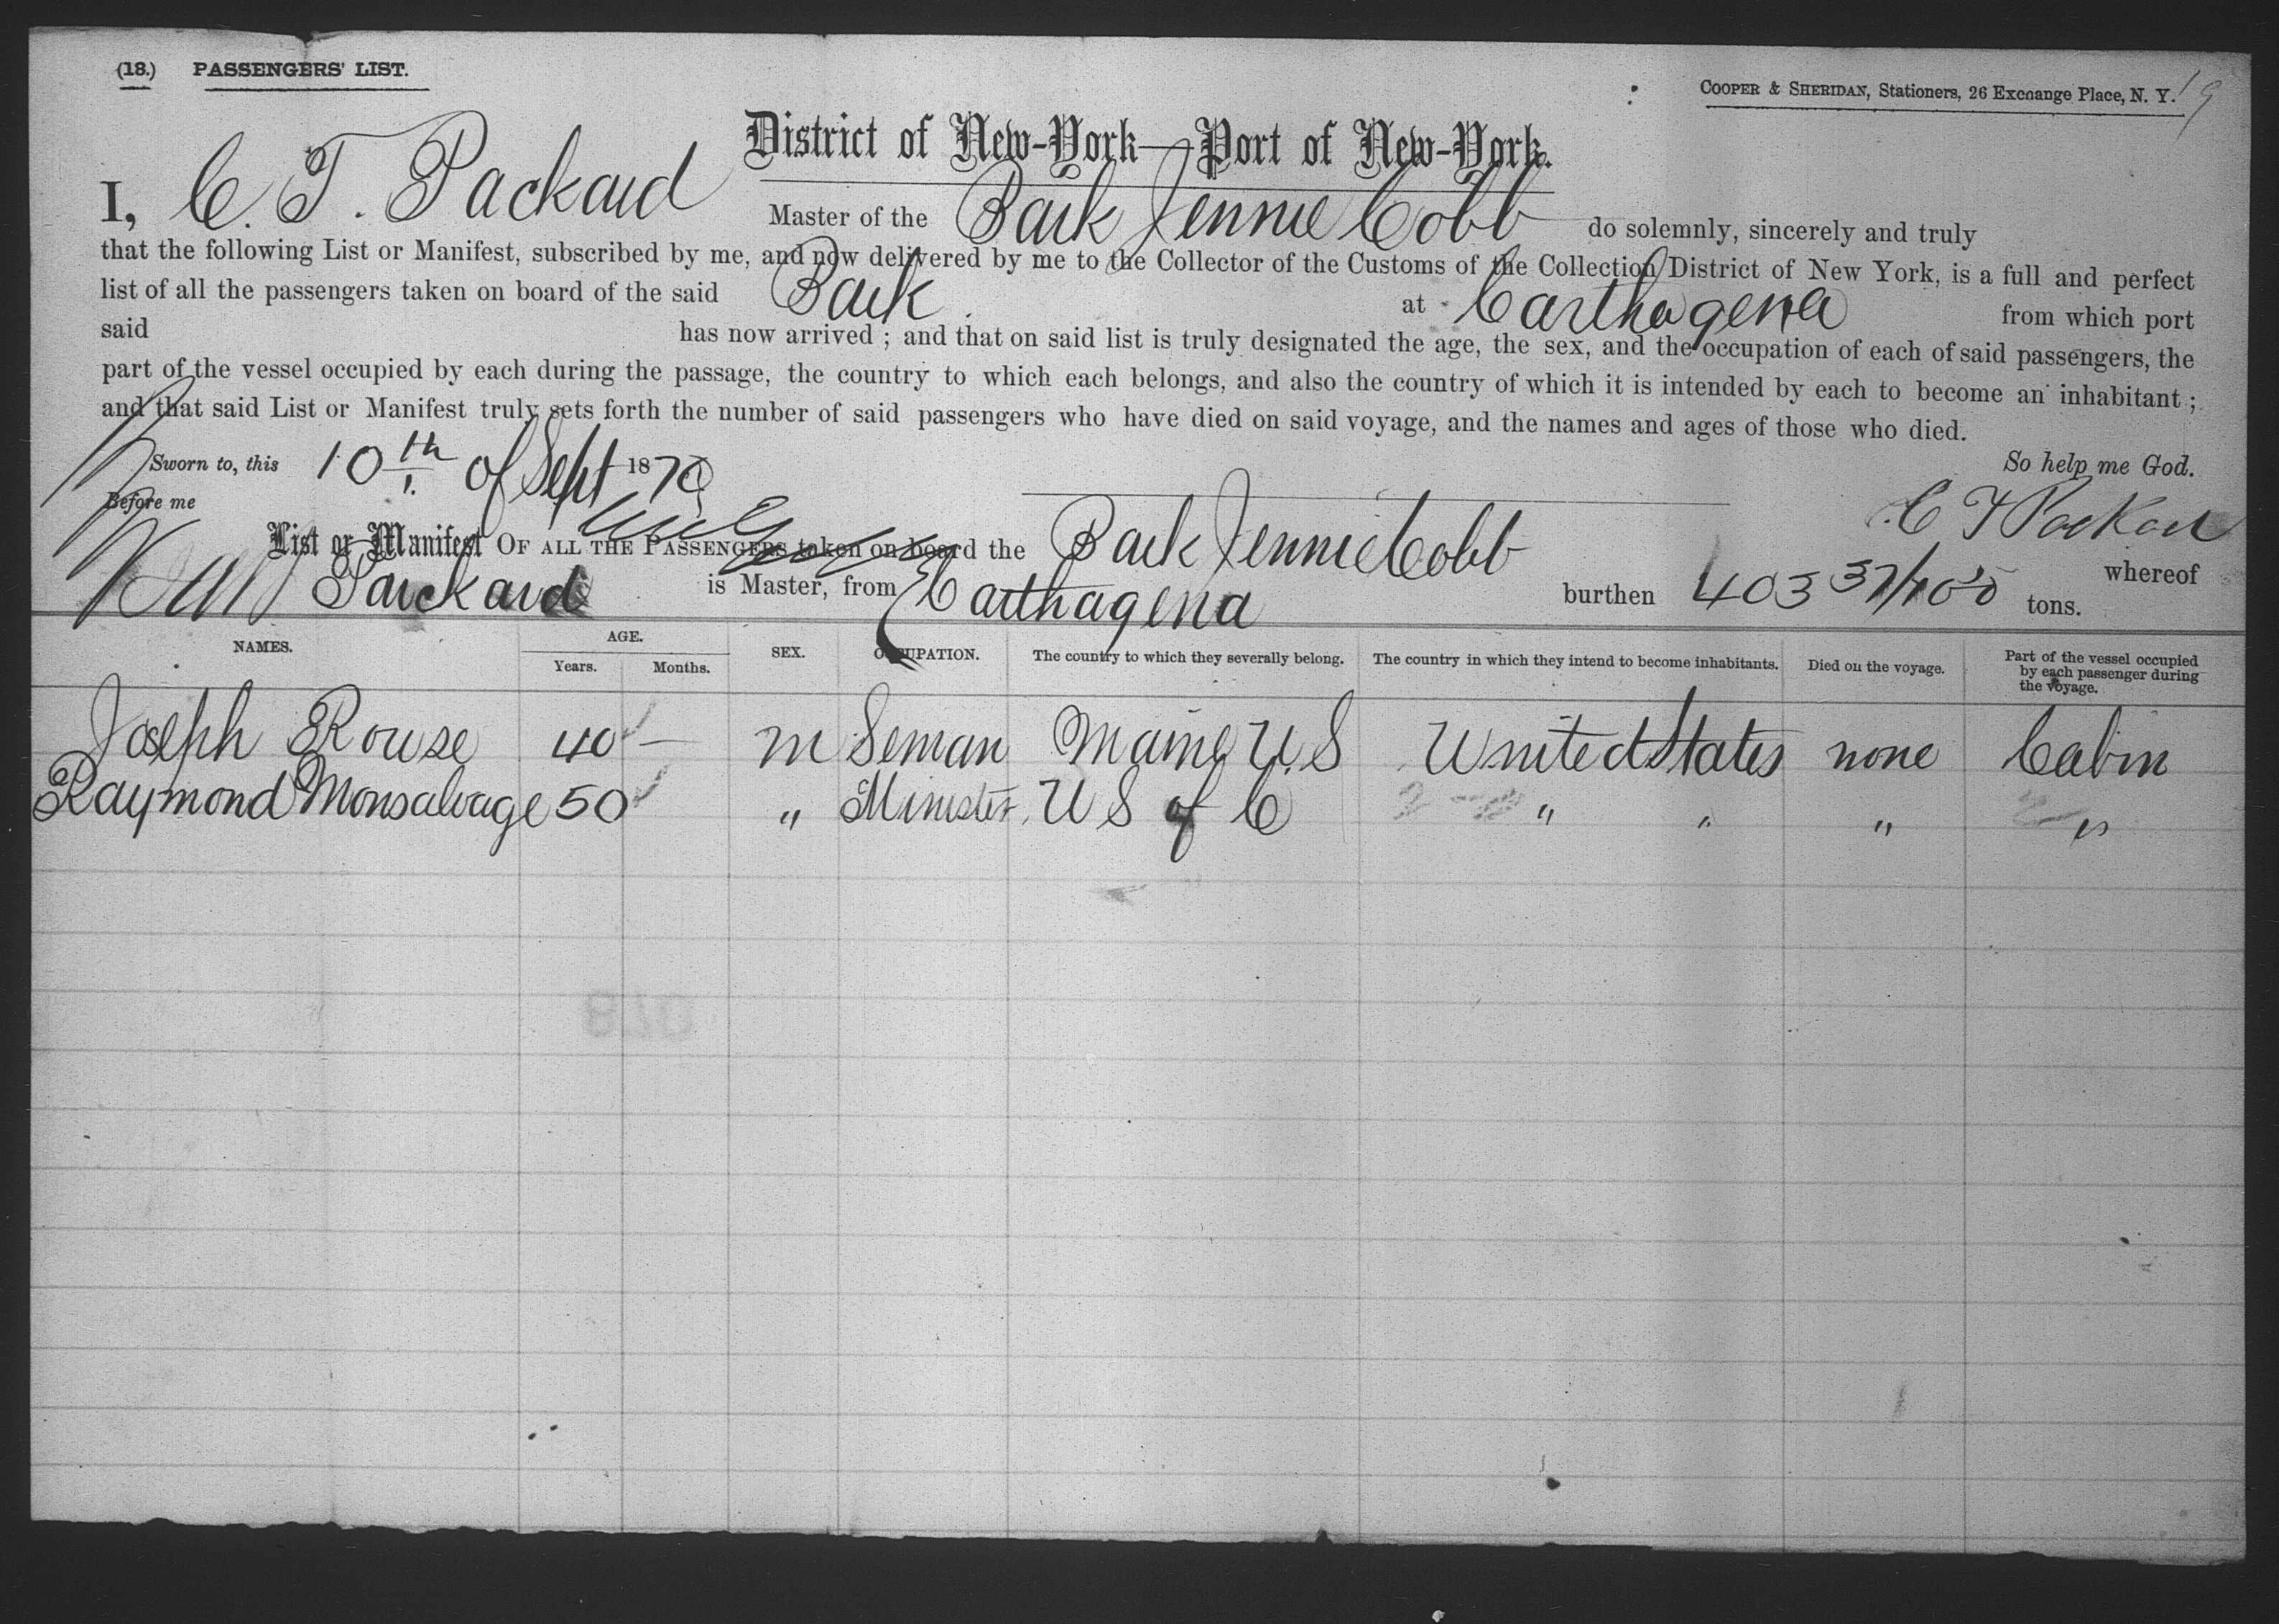 (18.) PASSENGERS' LIST.
COOPER & SHERIDAN, Stationers, 26 Exchange Place, N. Y.
19
District of New-York—Port of New-York.
I, C. T. Packard Master of the Bark Jennie Cobb do solemnly, sincerely and truly
that the following List or Manifest, subscribed by me, and now delivered by me to the Collector of the Customs of the Collection District of New York, is a full and perfect
list of all the passengers taken on board of the said Bark at Carthagena from which port
said has now arrived ; and that on said list is truly designated the age, the sex, and the occupation of each of said passengers, the
part of the vessel occupied by each during the passage, the country to which each belongs, and also the country of which it is intended by each to become an inhabitant ;
and that said List or Manifest truly sets forth the number of said passengers who have died on said voyage, and the names and ages of those who died.
Sworn to, this 10th of Sept 1870 So help me God.
Before me C T Packard
List or Manifest OF ALL THE PASSENGERS taken on board the Bark Jennie Cobb whereof
Packard is Master, from Carthagena burthen 403 37/100 tons.
NAMES. AGE. Years. Months. SEX. OCCUPATION. The country to which they severally belong. The country in which they intend to become inhabitants. Died on the voyage. Part of the vessel occupied by each passenger during the voyage.
Joseph Rouse 40 — m Seman Maine U.S United States none Cabin
Raymond Monsalvage 50 " Minister U S of C " " " "